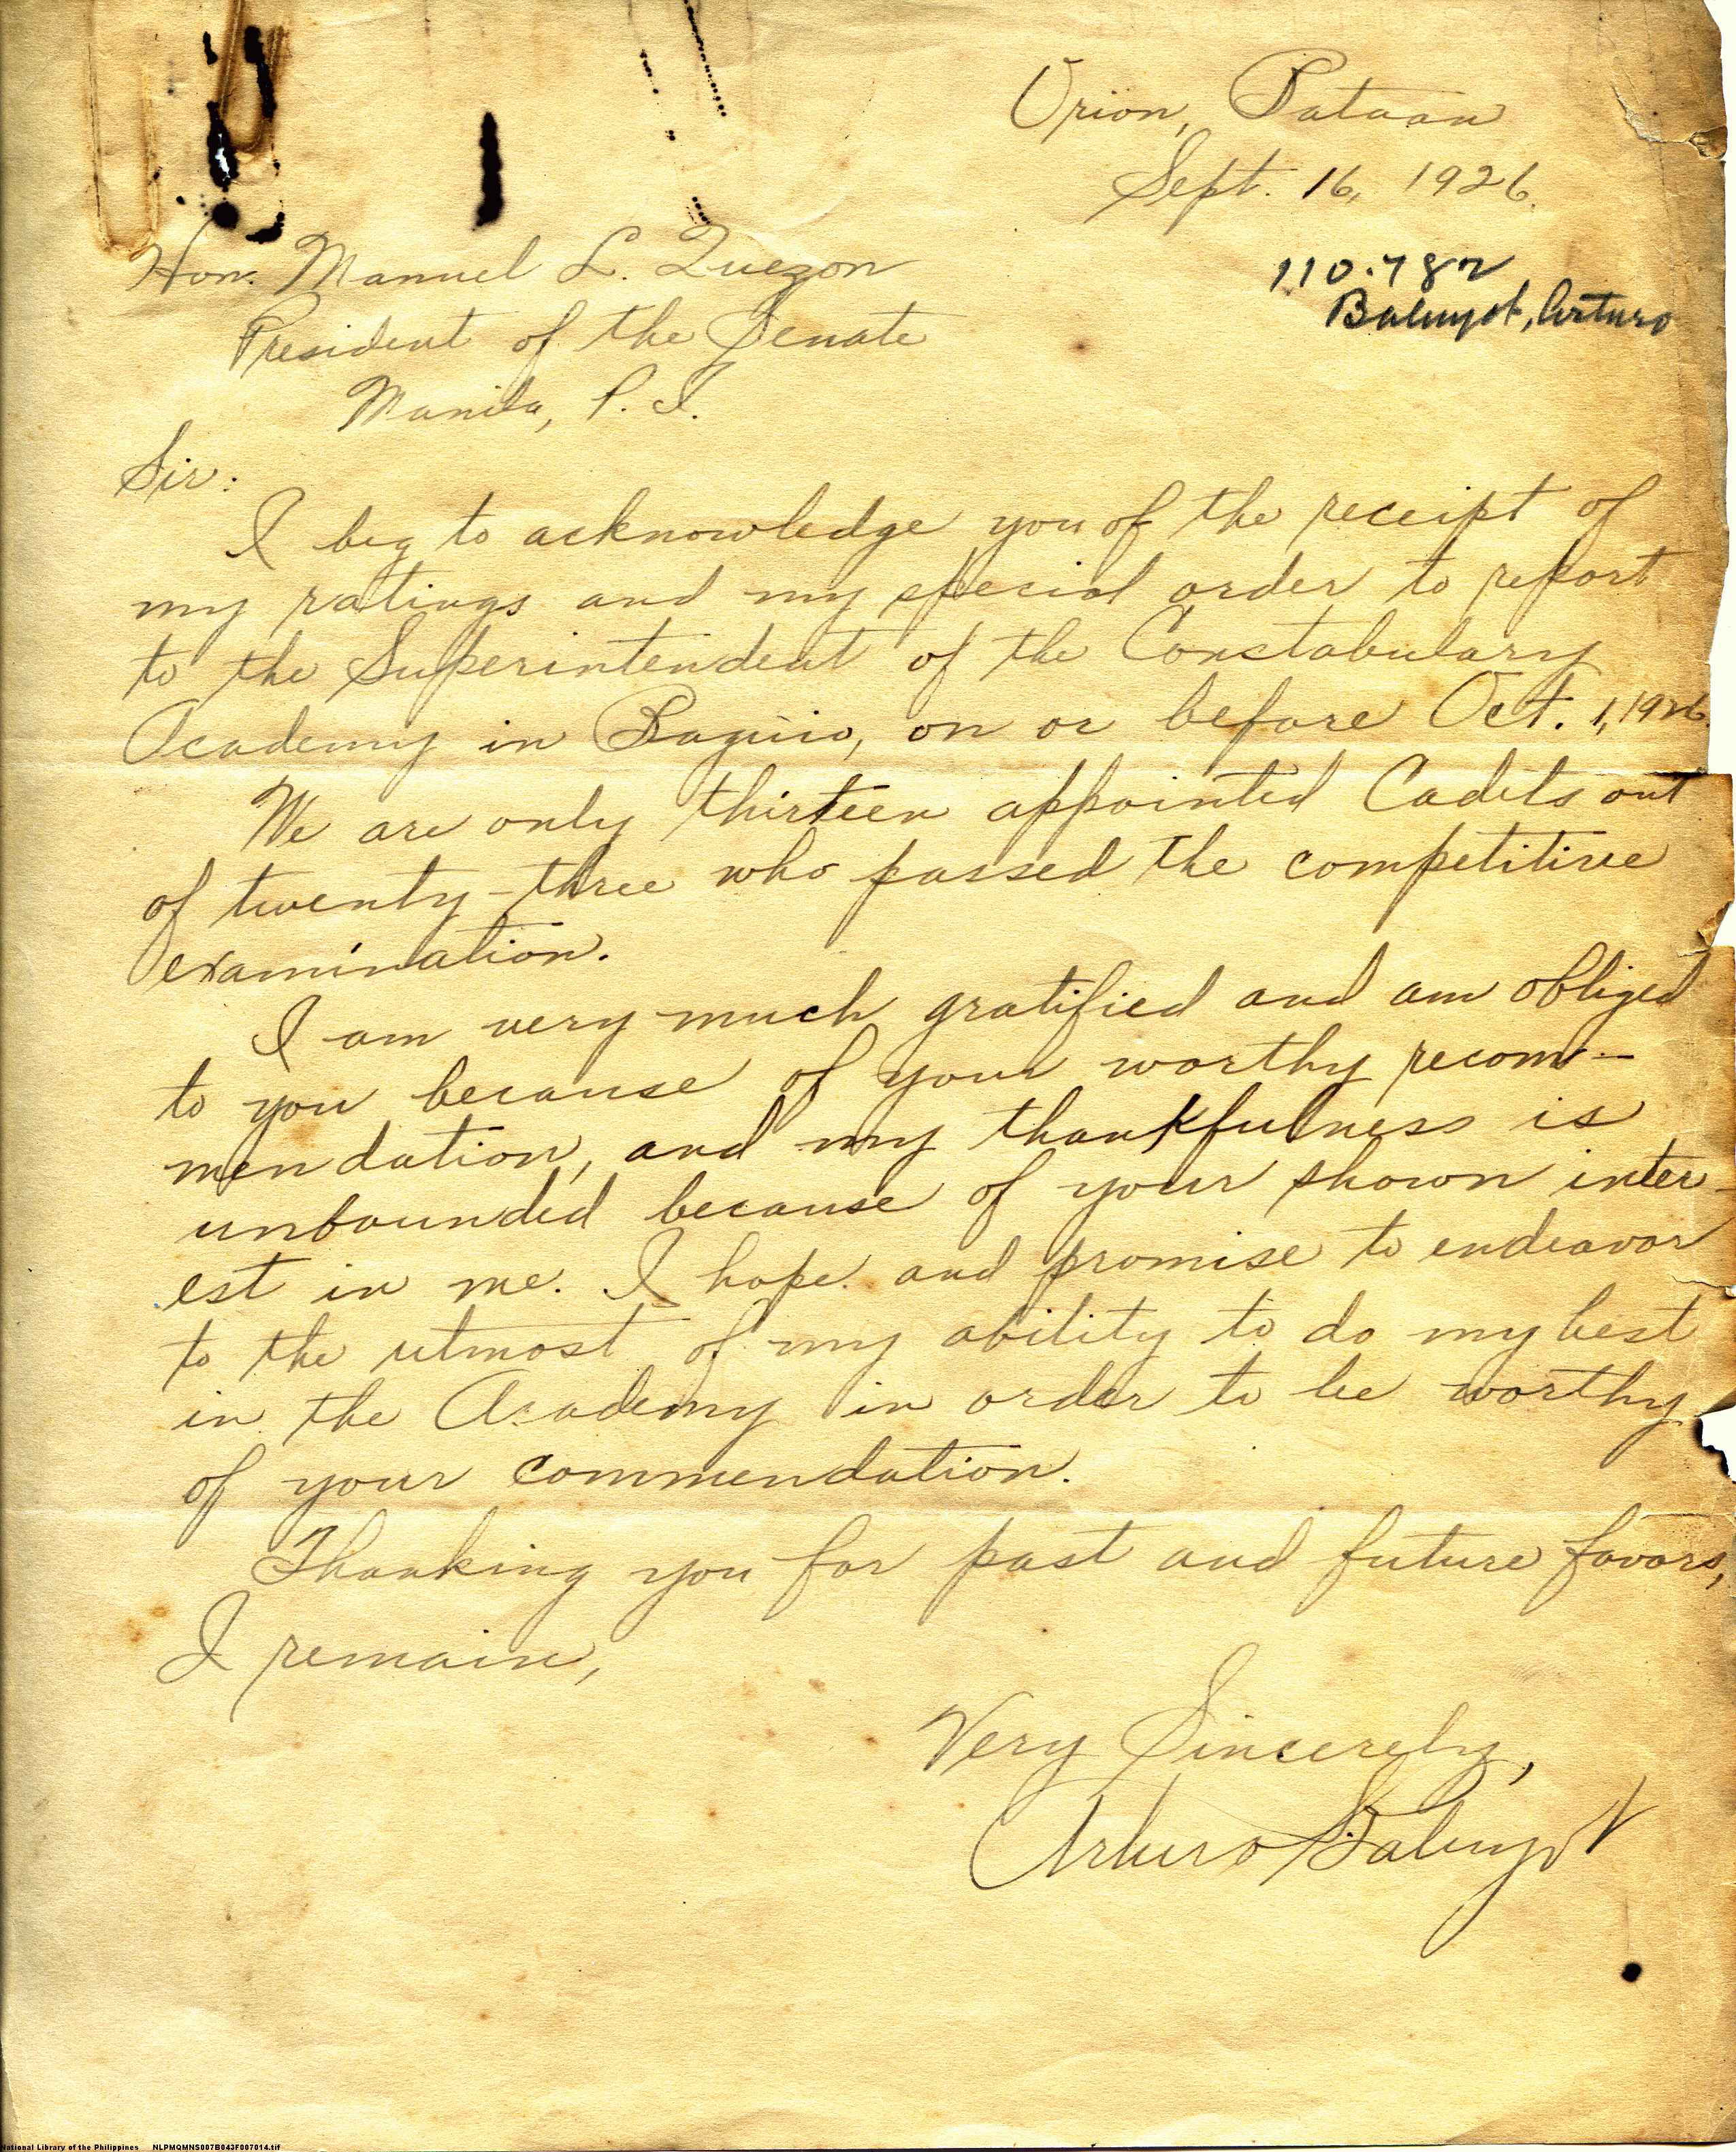 Orion, Bataan
Sept. 16, 1926.
110.782
Baluyot, Arturo
Hon. Manuel L. Quezon
President of the Senate
Manila, P. I.
Sir:
I beg to acknowledge you of the receipt of
my ratings and my special order to report
to the Superintendent of the Constabulary
Academy in Baguio, on or before Oct. 1, 1926.
We are only thirteen appointed Cadets out
of twenty-three who passed the competitive
examination.
I am very much gratified and am obliged
to you because of your worthy recom-
mendation, and my thankfulness is
unbounded because of your shown inter-
est in me. I hope and promise to endeavor
to the utmost of my ability to do my best
in the Academy in order to be worthy
of your commendation.
Thanking you for past and future favors,
I remain,
Very Sincerely,
Arturo Baluyot
National Library of the Philippines NLPMQMNS007B043F007014.tif